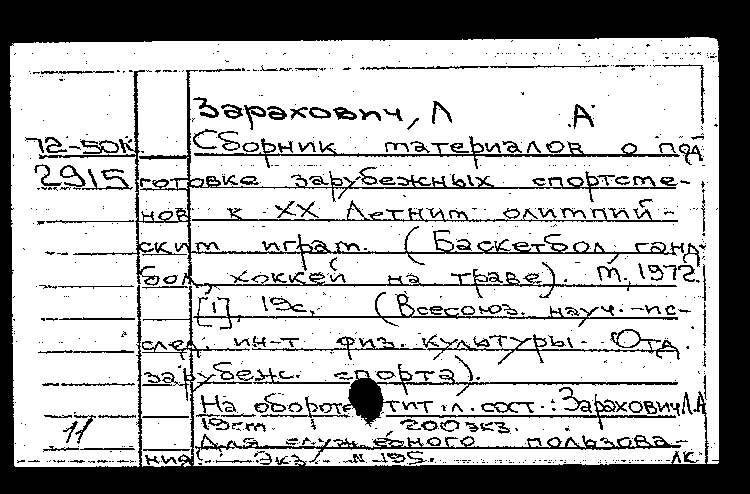 Зарахович, Л А
72-50К Сборник материалов о под
2915 готовке зарубежных спортсме-
нов к XX Летним олимпий-
ским играм. (Баскетбол, ганд-
бол, хоккей на траве). М., 1972
[1], 19с. (Всесоюз. науч.-ис-
след. ин-т физ. культуры. Отд.
зарубеж. спорта).
На обороте тит. л. сост.: Зарахович Л.А
19см. 200экз.
11 Для служебного пользова-
ния. Экз. N 195. ЛК